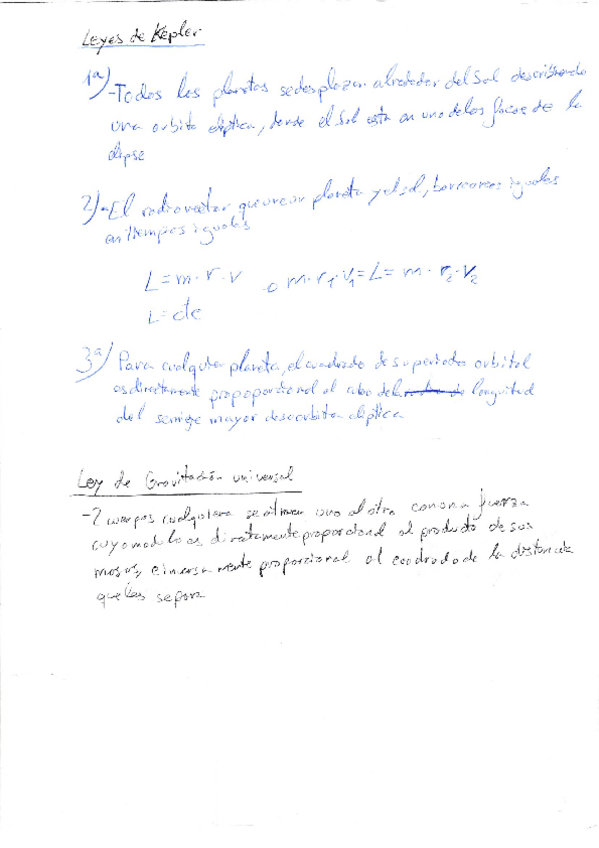 Leyes de Kepler
1ª)-Todos los planetas se desplazan alrededor del Sol describiendo
una orbita eliptica, donde el Sol esta en uno de los focos de la
elipse
2)-El radiovector que une un planeta y el sol, barre areas iguales
en tiempos iguales
L=m·r·v o m·r₁·v₁=L= m·r₂·v₂
L=cte
3ª) Para cualquier planeta, el cuadrado de su periodos orbital
es directamente propoporcional al cubo de la longuitud
del semieje mayor de su orbita eliptica
Ley de Gravitación universal
-2 cuerpos cualquiera se atraen uno al otro con una fuerza
cuyo modulo es directamente proporcional al producto de sus
masas, e inversa mente proporcional al cuadrado de la distancia
que las separa